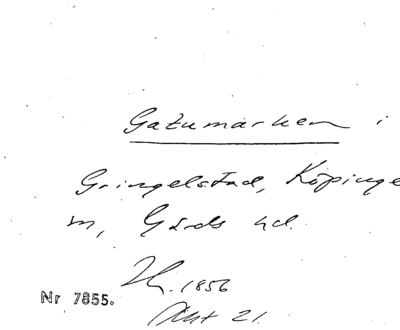 Gatumarken i
Gringelstad, Köpinge
sn, Gärds hd.
1856
Nr 7855.
Akt 21.